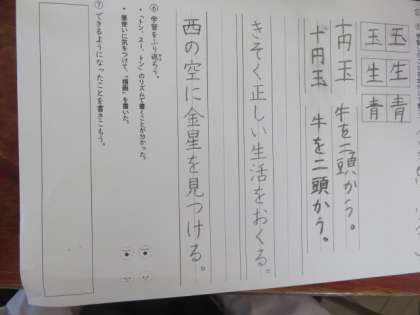 玉 玉
生 生
青 青
十円玉 牛を二頭かう。
十円玉 牛を二頭かう。
きそく正しい生活をおくる。
西の空に金星を見つける。
⑥ 学習をふり返ろう。
・「トン、スー、トン」のリズムで書くことが分かった。
・筆使いに気をつけて、「横画」を書いた。
⑦ できるようになったことを書きこもう。